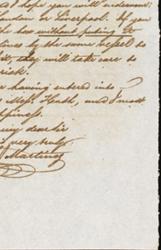 as I hope you will endeavour
London or Liverpool. If you
he has without putting to
lines by the same vessel to
it, they will take care to
risk.
r having entered into
Mess. Heath, and I most
ppiness.
my dear Sir
very truly
Martinez